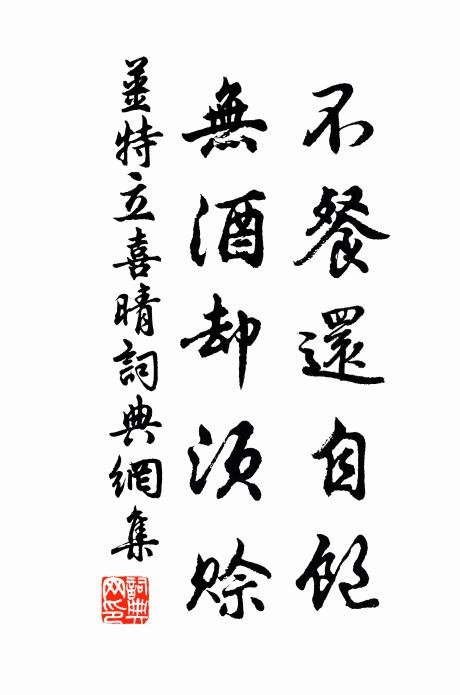 不餐還自飽
無酒却須賒
薑特立喜晴詞典網集
詞典
网印